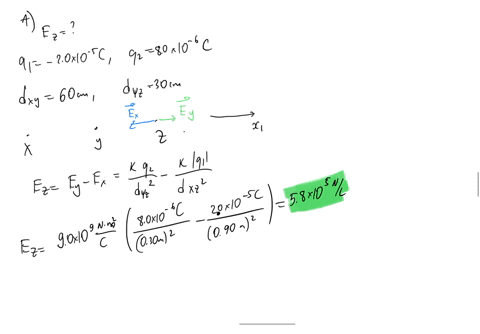 A) E_z = ?
q_1 = -2.0×10^-5 C, q_2 = 8.0×10^-6 C
d_xy = 60 cm, d_yz = 30 cm
E_x E_y
x y z x_1
E_z = E_y - E_x = K q_2 / d_yz^2 - K |q_1| / d_xz^2
E_z = 9.0×10^9 N·m^2 / C ( 8.0×10^-6 C / (0.30m)^2 - 2.0×10^-5 C / (0.90m)^2 ) = 5.8×10^5 N/C